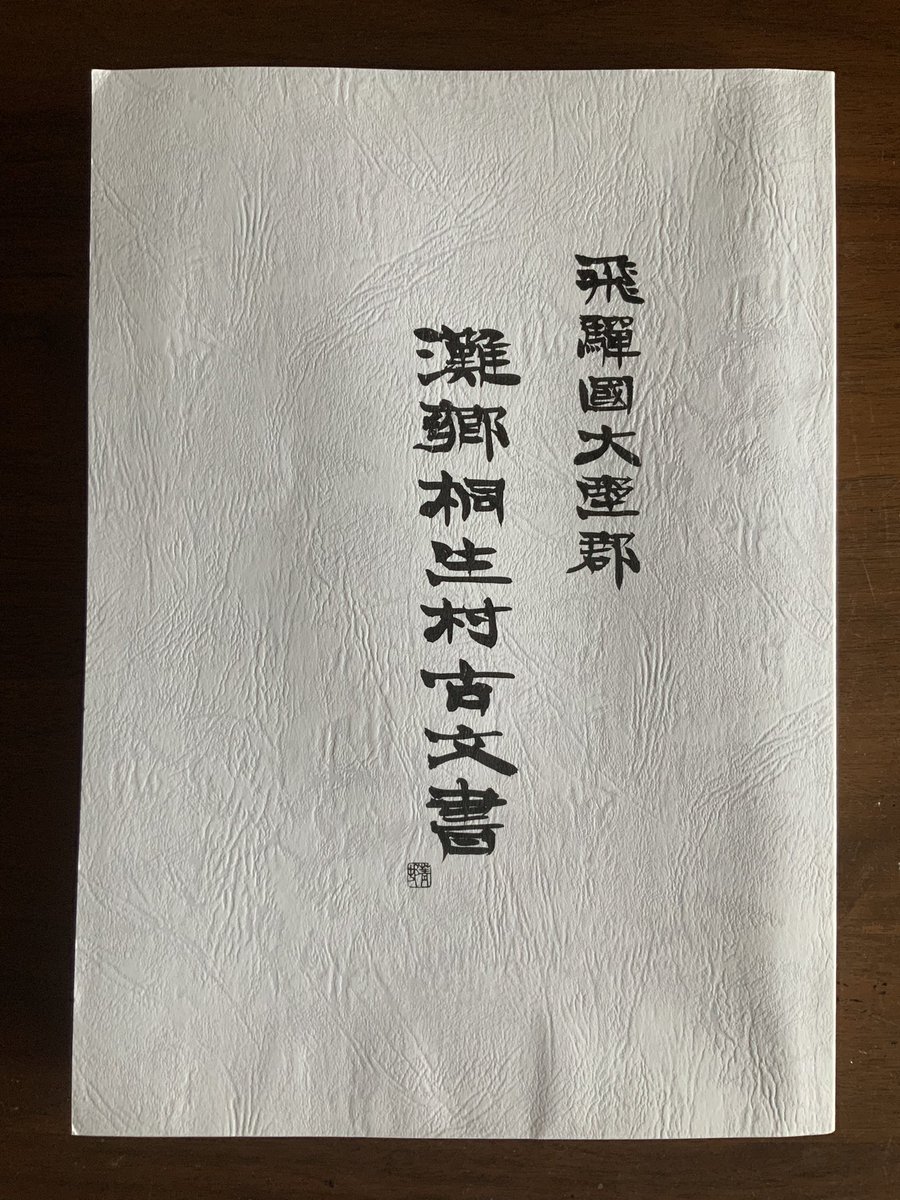 飛驒國大郡
灘鄉桐生村古文書